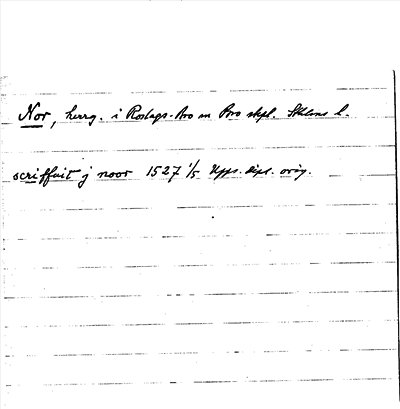 Nor, herrg. i Roslags-Bro sn Bro skpl. Sthlms l.
scriffuit j noor 1527 1/5 Upps. dipl. orig.